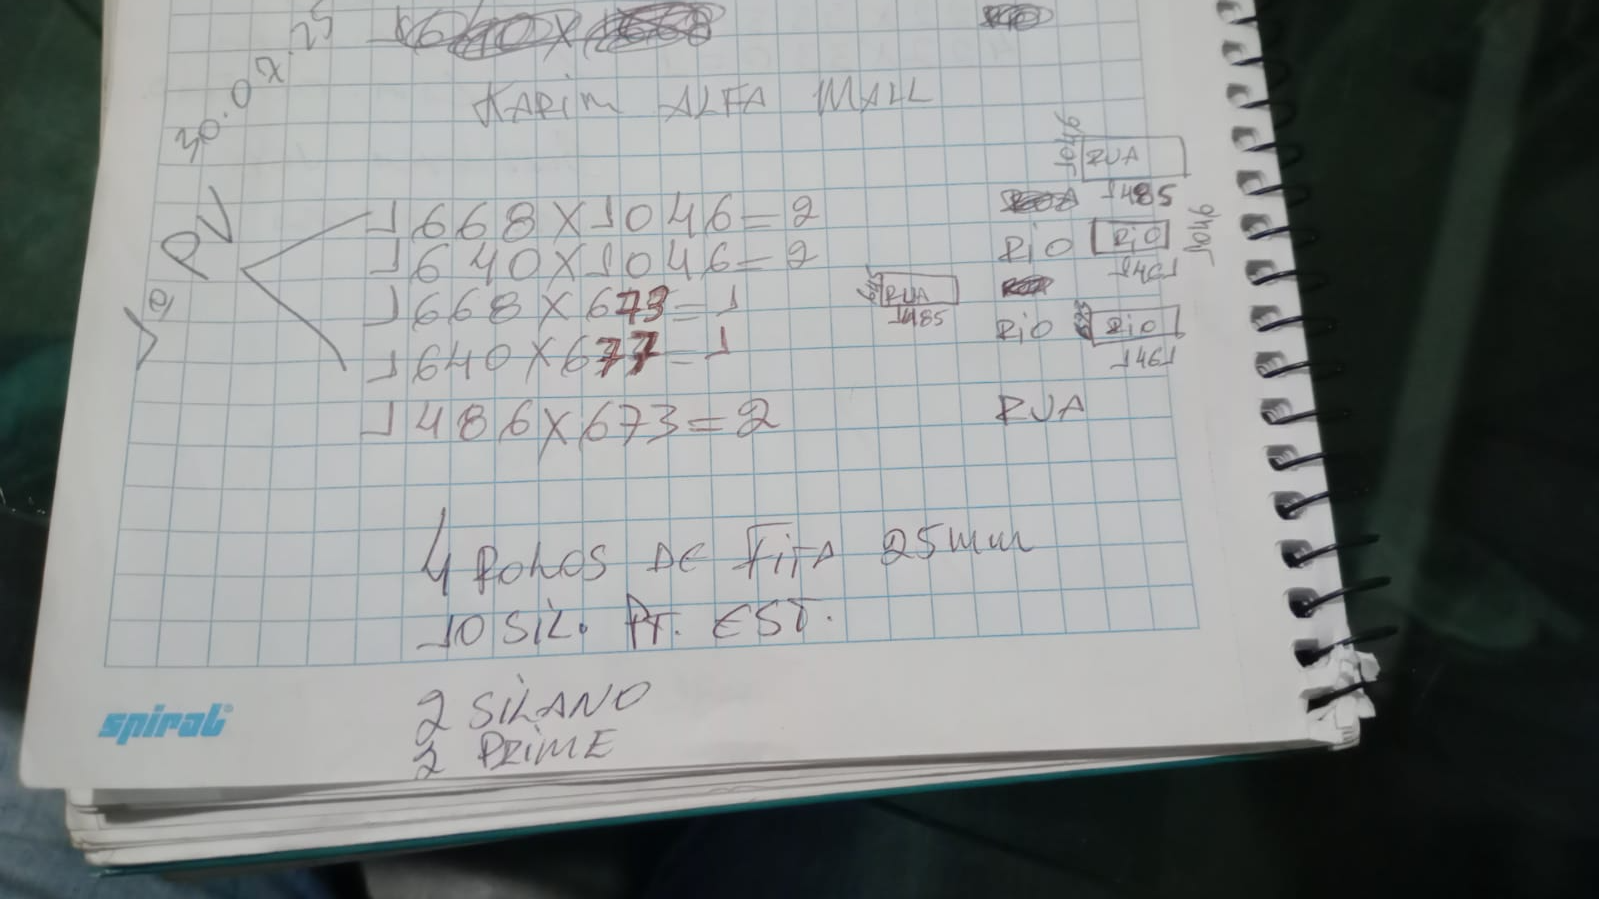 30.07.25
KARIM ALFA MALL
PV
1668X1046=2
1640X1046=2
1668X673=1
1640X677=1
1486X673=2
1046
RUA
1485
RiO
RiO
1046
1461
RUA
1485
RiO
RiO
1461
RUA
4 ROLOS DE FiTA 25mm
10 SiL. PT. EST.
2 SiLANO
2 PRiME
spiral